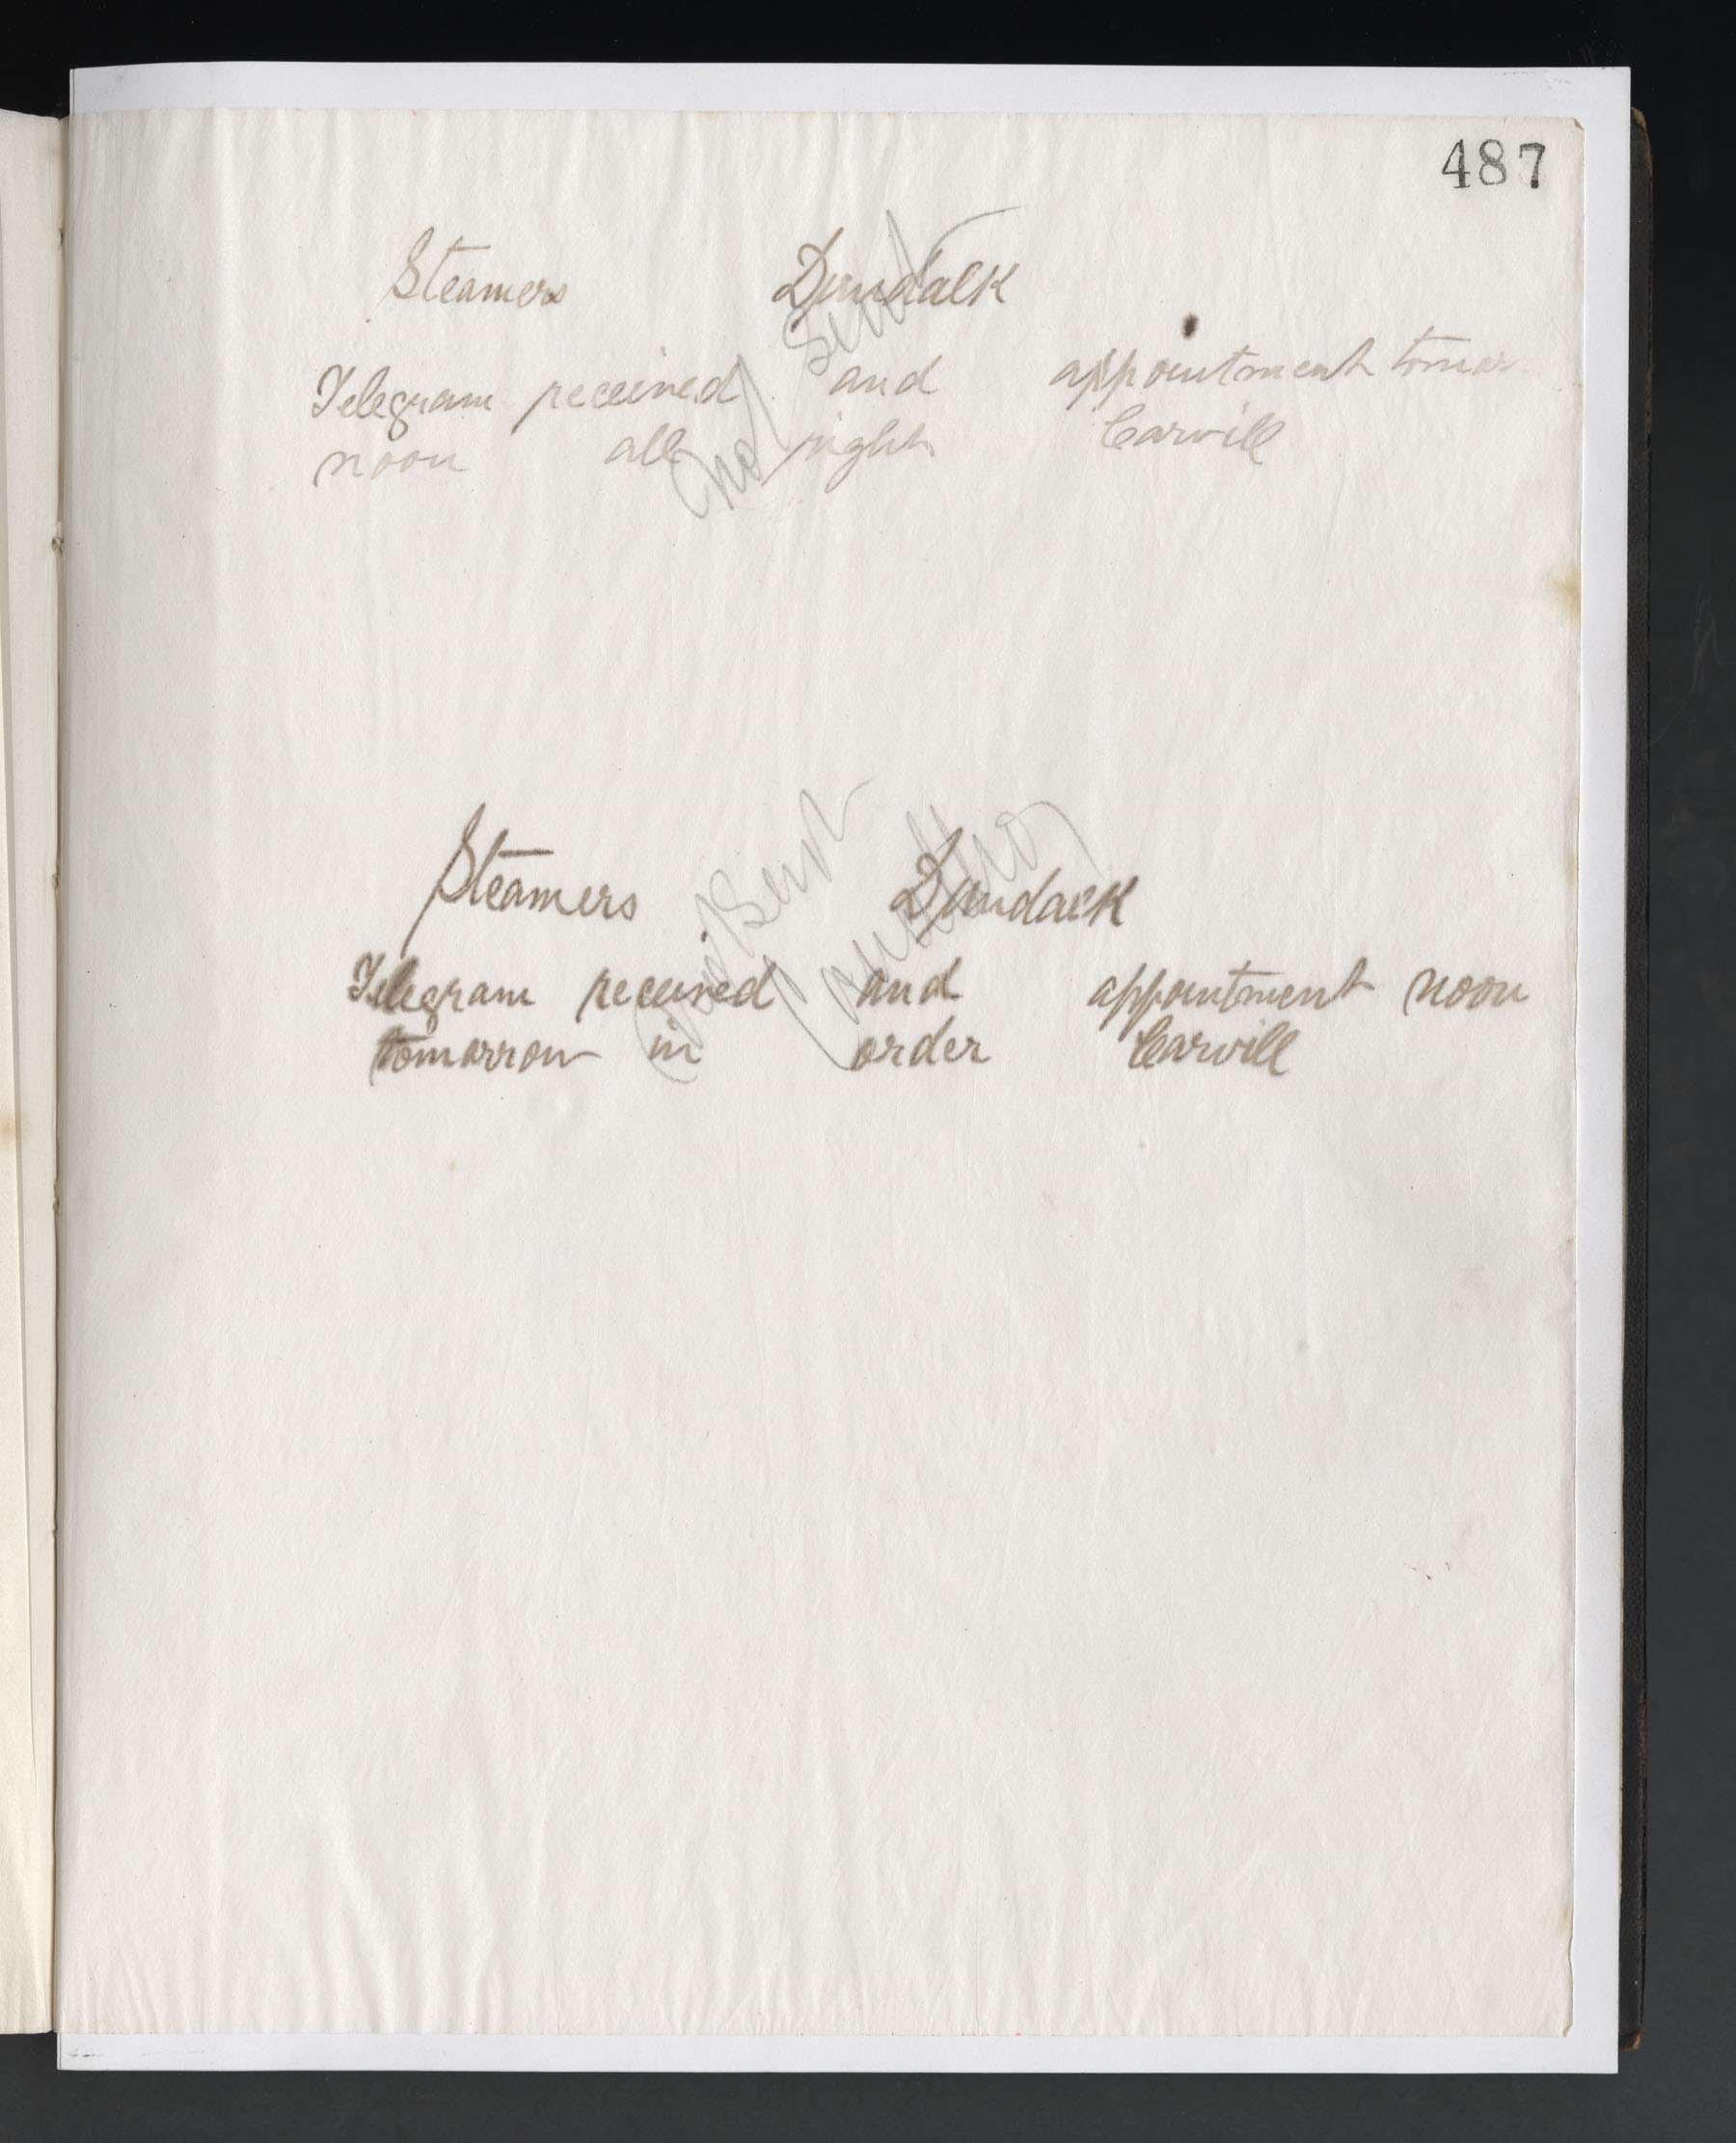 487
Steamers Dundalk
not sent
Telegram received and appointment tomor
noon all right Carvill
Steamers Dundalk
not sent
Telegram received and appointment noon
tomorrow in order Carvill